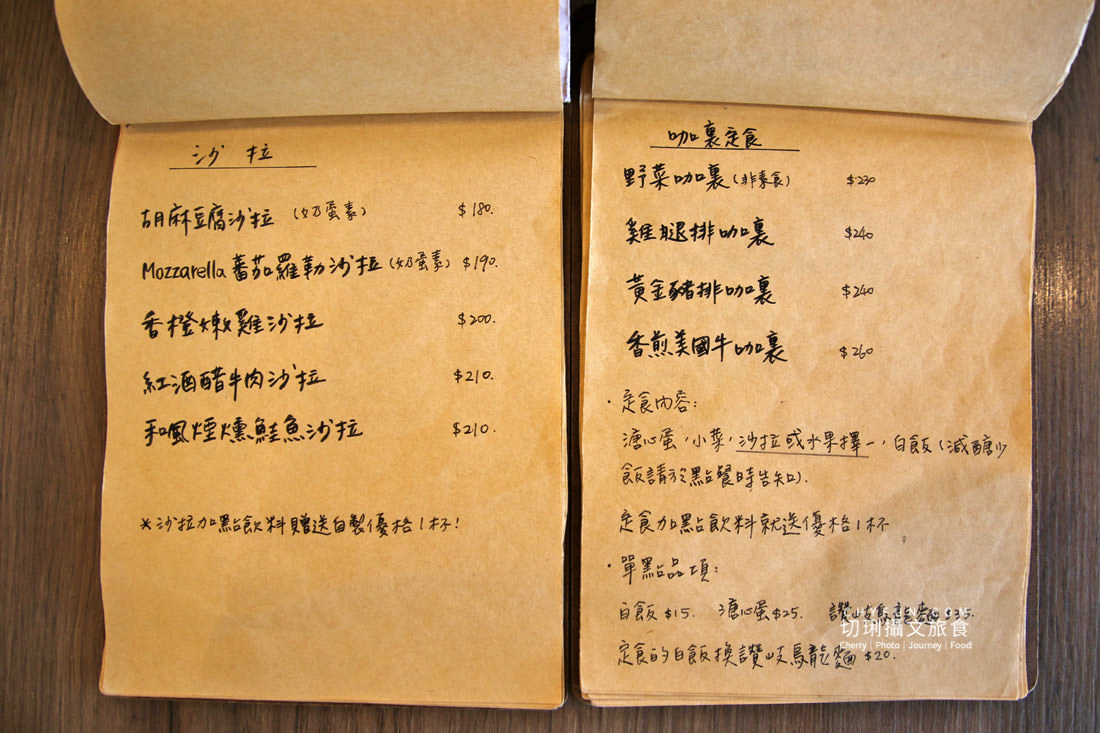 沙拉
胡麻豆腐沙拉 (奶蛋素) $180.
Mozzarella 蕃茄羅勒沙拉 (奶蛋素) $190.
香橙嫩雞沙拉 $200.
紅酒醋牛肉沙拉 $210.
和風煙燻鮭魚沙拉 $210.
*沙拉加點飲料贈送自製優格1杯!
咖裏定食
野菜咖裏 (非素食) $230
雞腿排咖裏 $240
黃金豬排咖裏 $240
香煎美國牛咖裏 $260
·定食內容:
溏心蛋,小菜,沙拉或水果擇一,白飯(減醣少
飯請於點餐時告知).
定食加點飲料就送優格1杯
·單點品項:
白飯 $15. 溏心蛋 $25. 讚岐烏龍麵 $35.
切琍攝文旅食
Cherry | Photo | Journey | Food
定食的白飯換讚岐烏龍麵 $20.